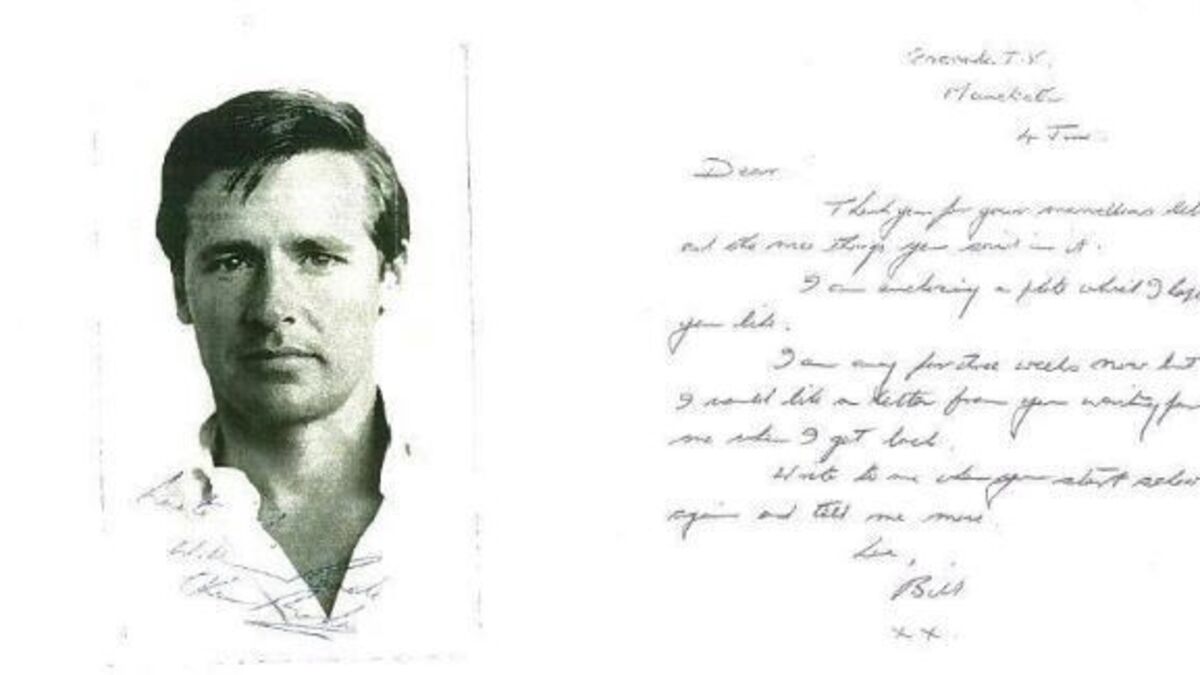 Granada T.V.
Manchester
4 June
Dear
Thank you for your marvellous let
and the nice things you said in it.
I am enclosing a photo which I hope
you like.
I am away for three weeks now but
I would like a letter from you waiting for
me when I get back.
Write to me when you start school
again and tell me more.
Love,
Bill
x x